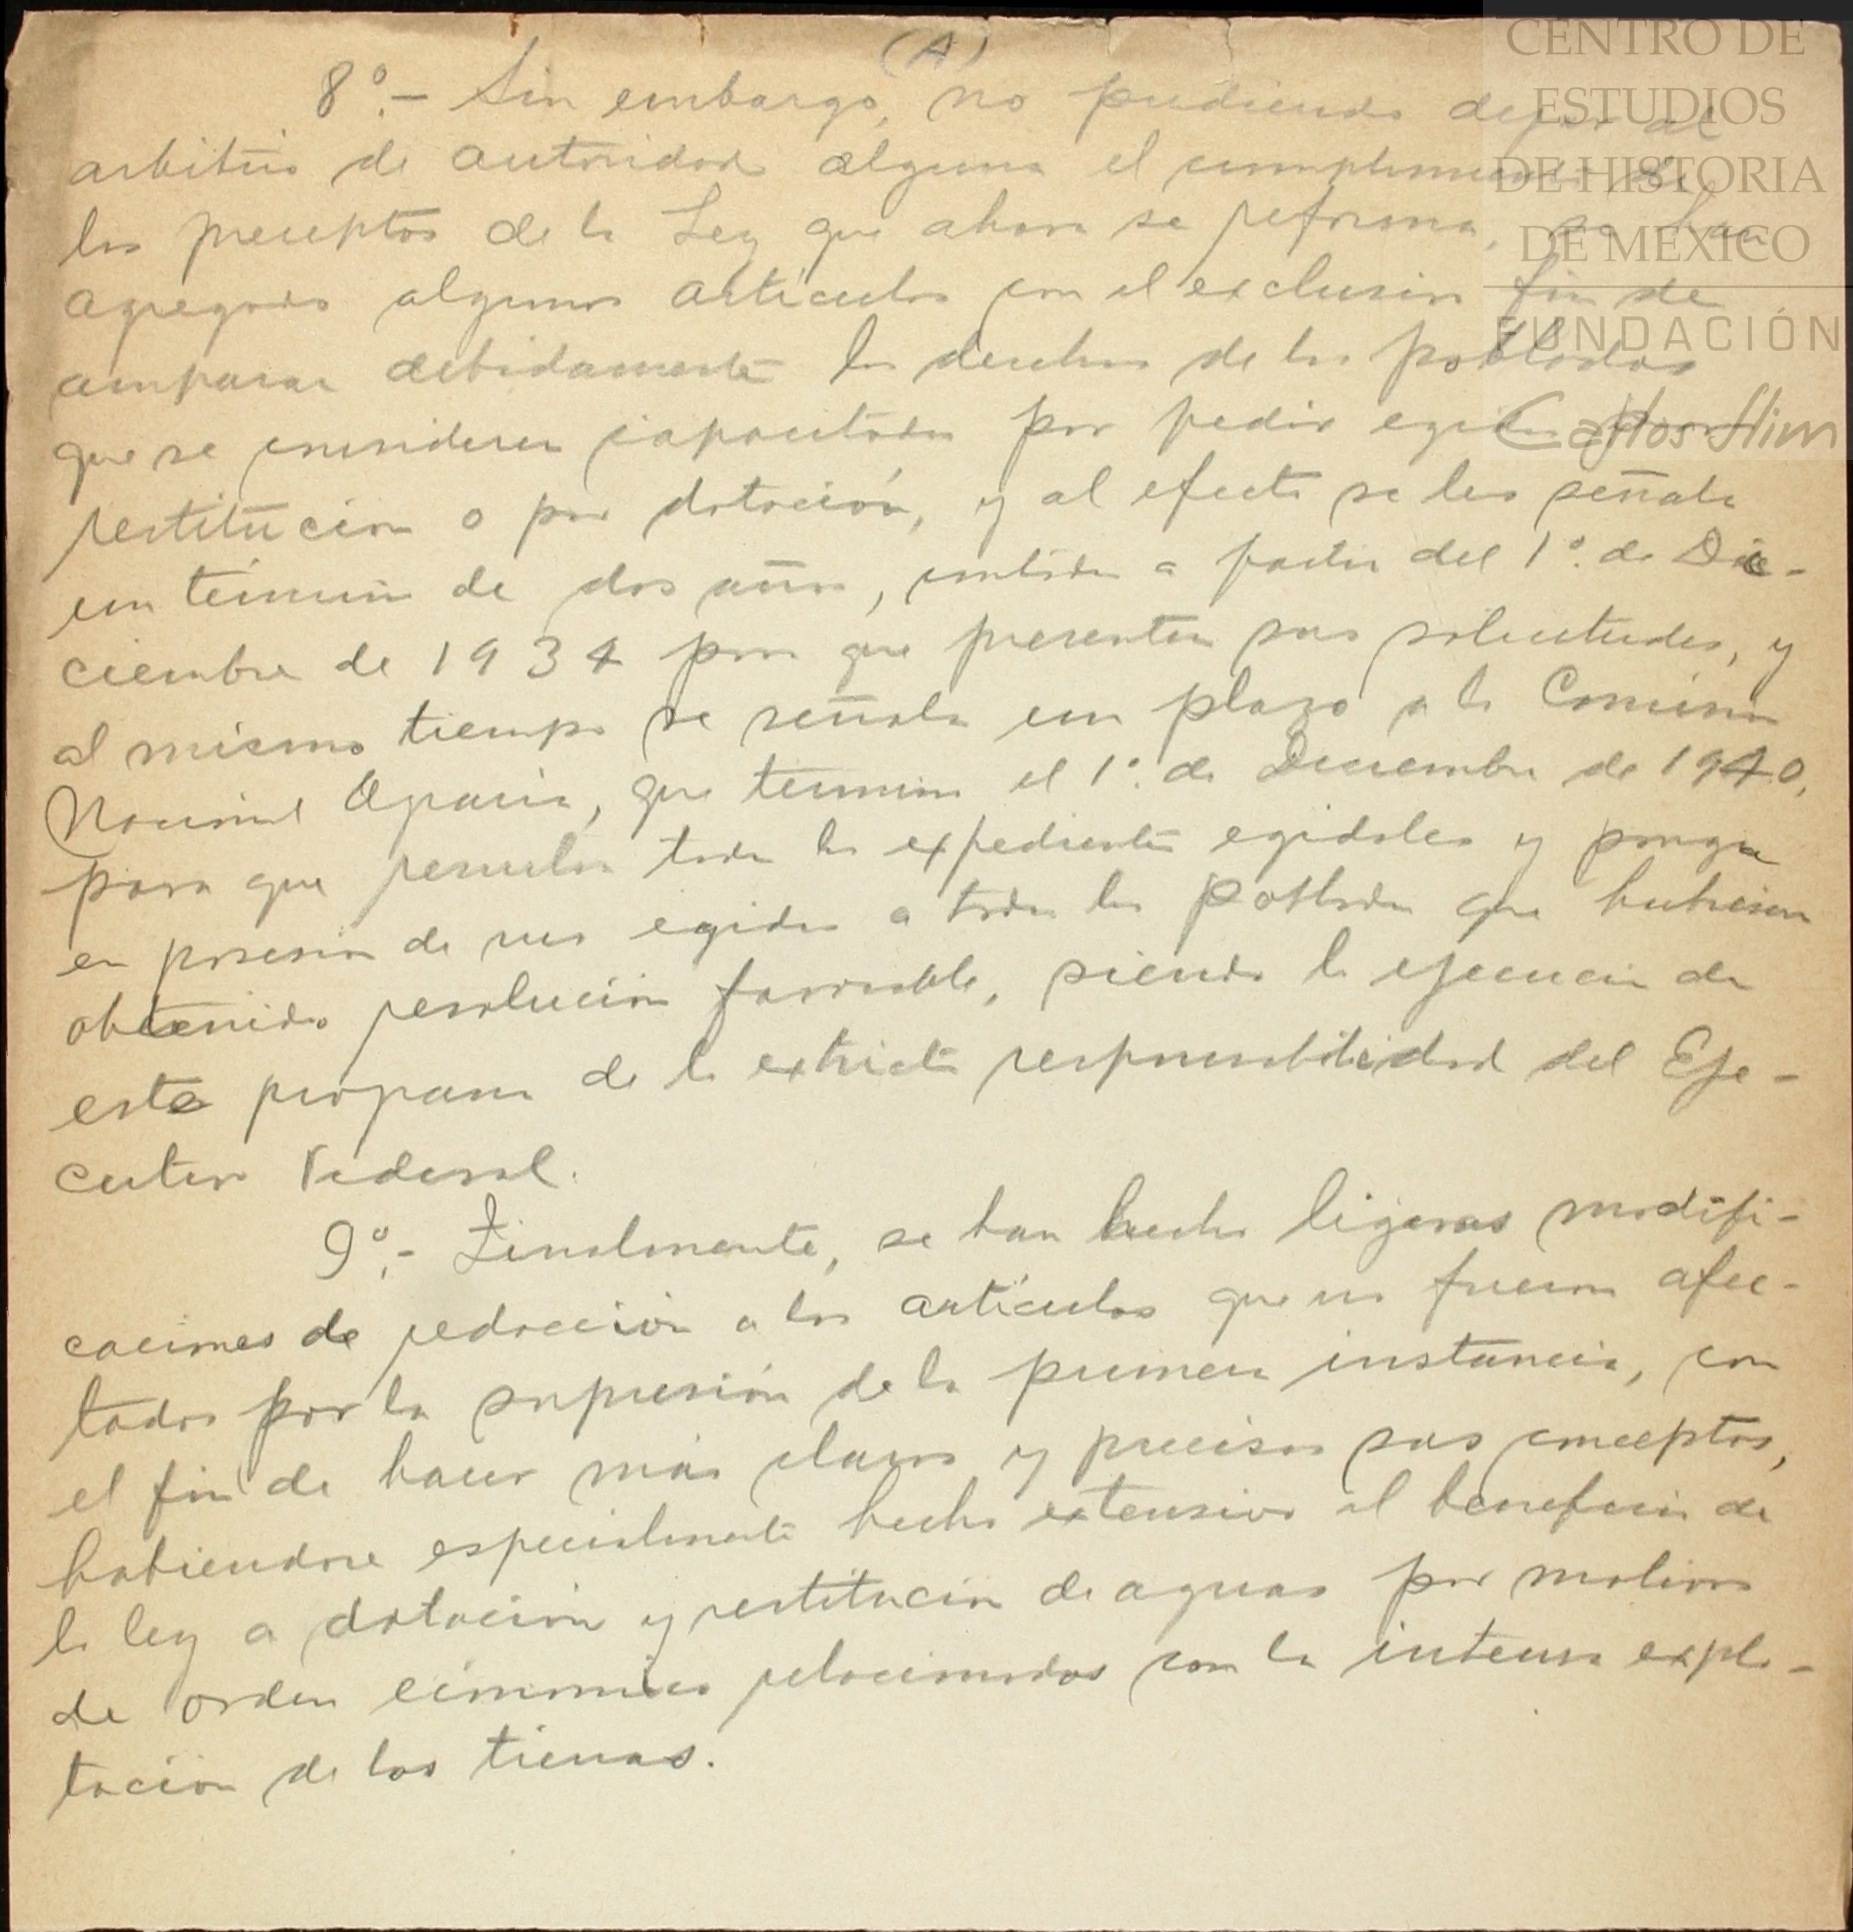 (A)
8º.- Sin embargo, no pudiendo dejar al
arbitrio de autoridad alguna el cumplimiento de
los preceptos de la Ley que ahora se reforma, se han
agregado algunos artículos con el exclusivo fin de
amparar debidamente los derechos de los poblados
que se consideren capacitados por pedir egidos por
restitución o por dotación, y al efecto se les señala
un término de dos años, contados a partir del 1º. de Dic-
ciembre de 1934 para que presenten sus solicitudes, y
al mismo tiempo se señala un plazo a la Comisión
Nacional Agraria, que termina el 1º. de Diciembre de 1940,
para que resuelva todos los expedientes egidales y ponga
en posesión de sus egidos a todos los poblados que hubiesen
obtenido resolución favorable, siendo la ejecución de
este programa de la estricta responsabilidad del Eje-
cutivo Federal.
9º.- Finalmente, se han hecho ligeras modifi-
caciones de redacción a los artículos que no fueron afec-
tados por la supresión de la primera instancia, con
el fin de hacer más claros y precisos sus conceptos,
habiendose especialmente hecho extensivo el beneficio de
la ley a dotación y restitución de aguas por motivos
de orden económico relacionados con la intensa explo-
tación de las tierras.
CENTRO DE
ESTUDIOS
DE HISTORIA
DE MEXICO
FUNDACIÓN
Carlos Slim